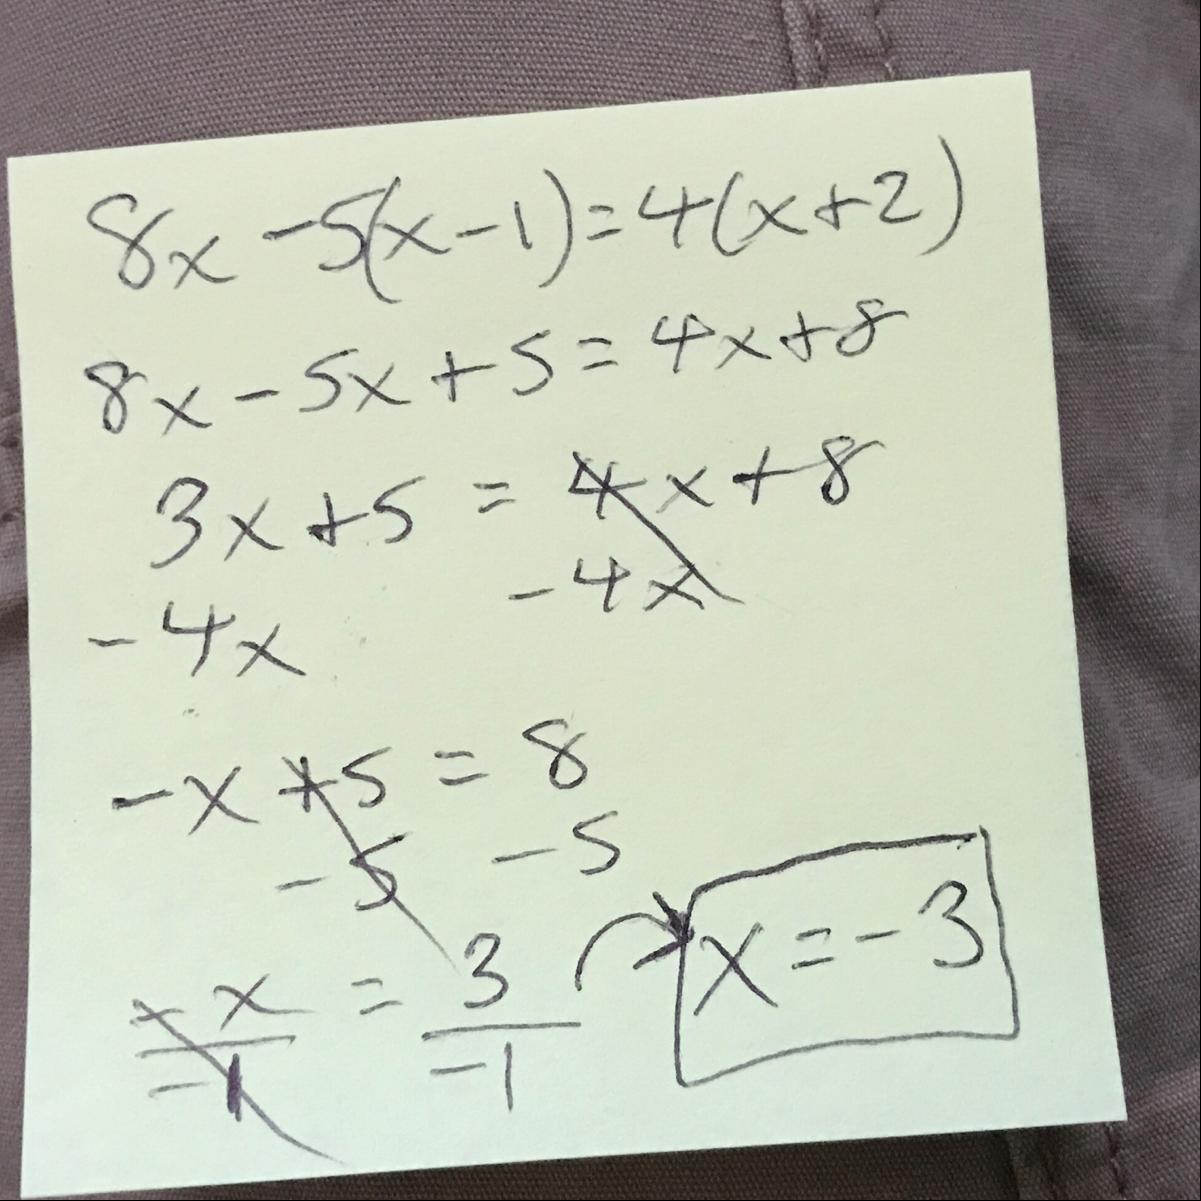 8x - 5(x - 1) = 4(x + 2)
8x - 5x + 5 = 4x + 8
3x + 5 = 4x + 8
-4x -4x
-x + 5 = 8
-5 -5
-x/-1 = 3/-1
x = -3